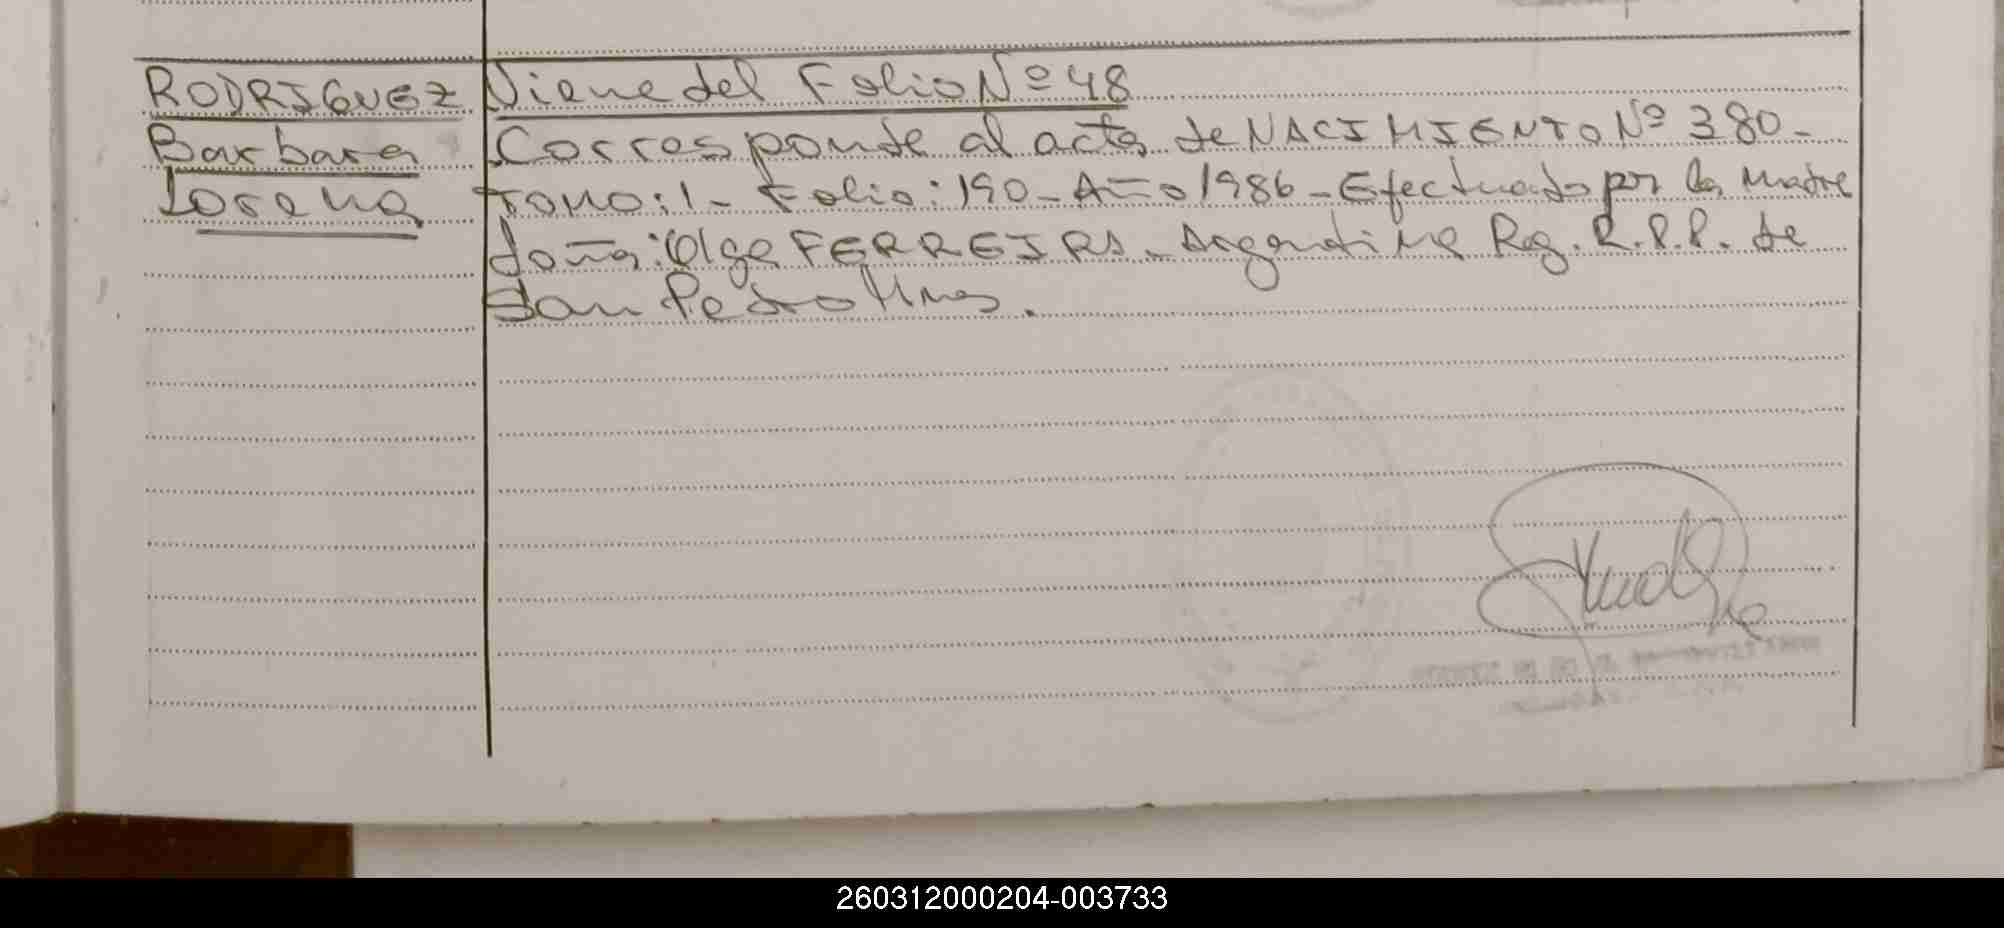 RODRIGUEZ
Barbara
Lorena
Viene del Folio Nº 48
Corresponde al acta de NACIMIENTO Nº 380-
Tomo: 1- Folio: 190- Año 1986- Efectuado por la Madre
doña: Olga FERREIRA- Argentina Reg. R.P.P. de
San Pedro Mnes.
260312000204-003733